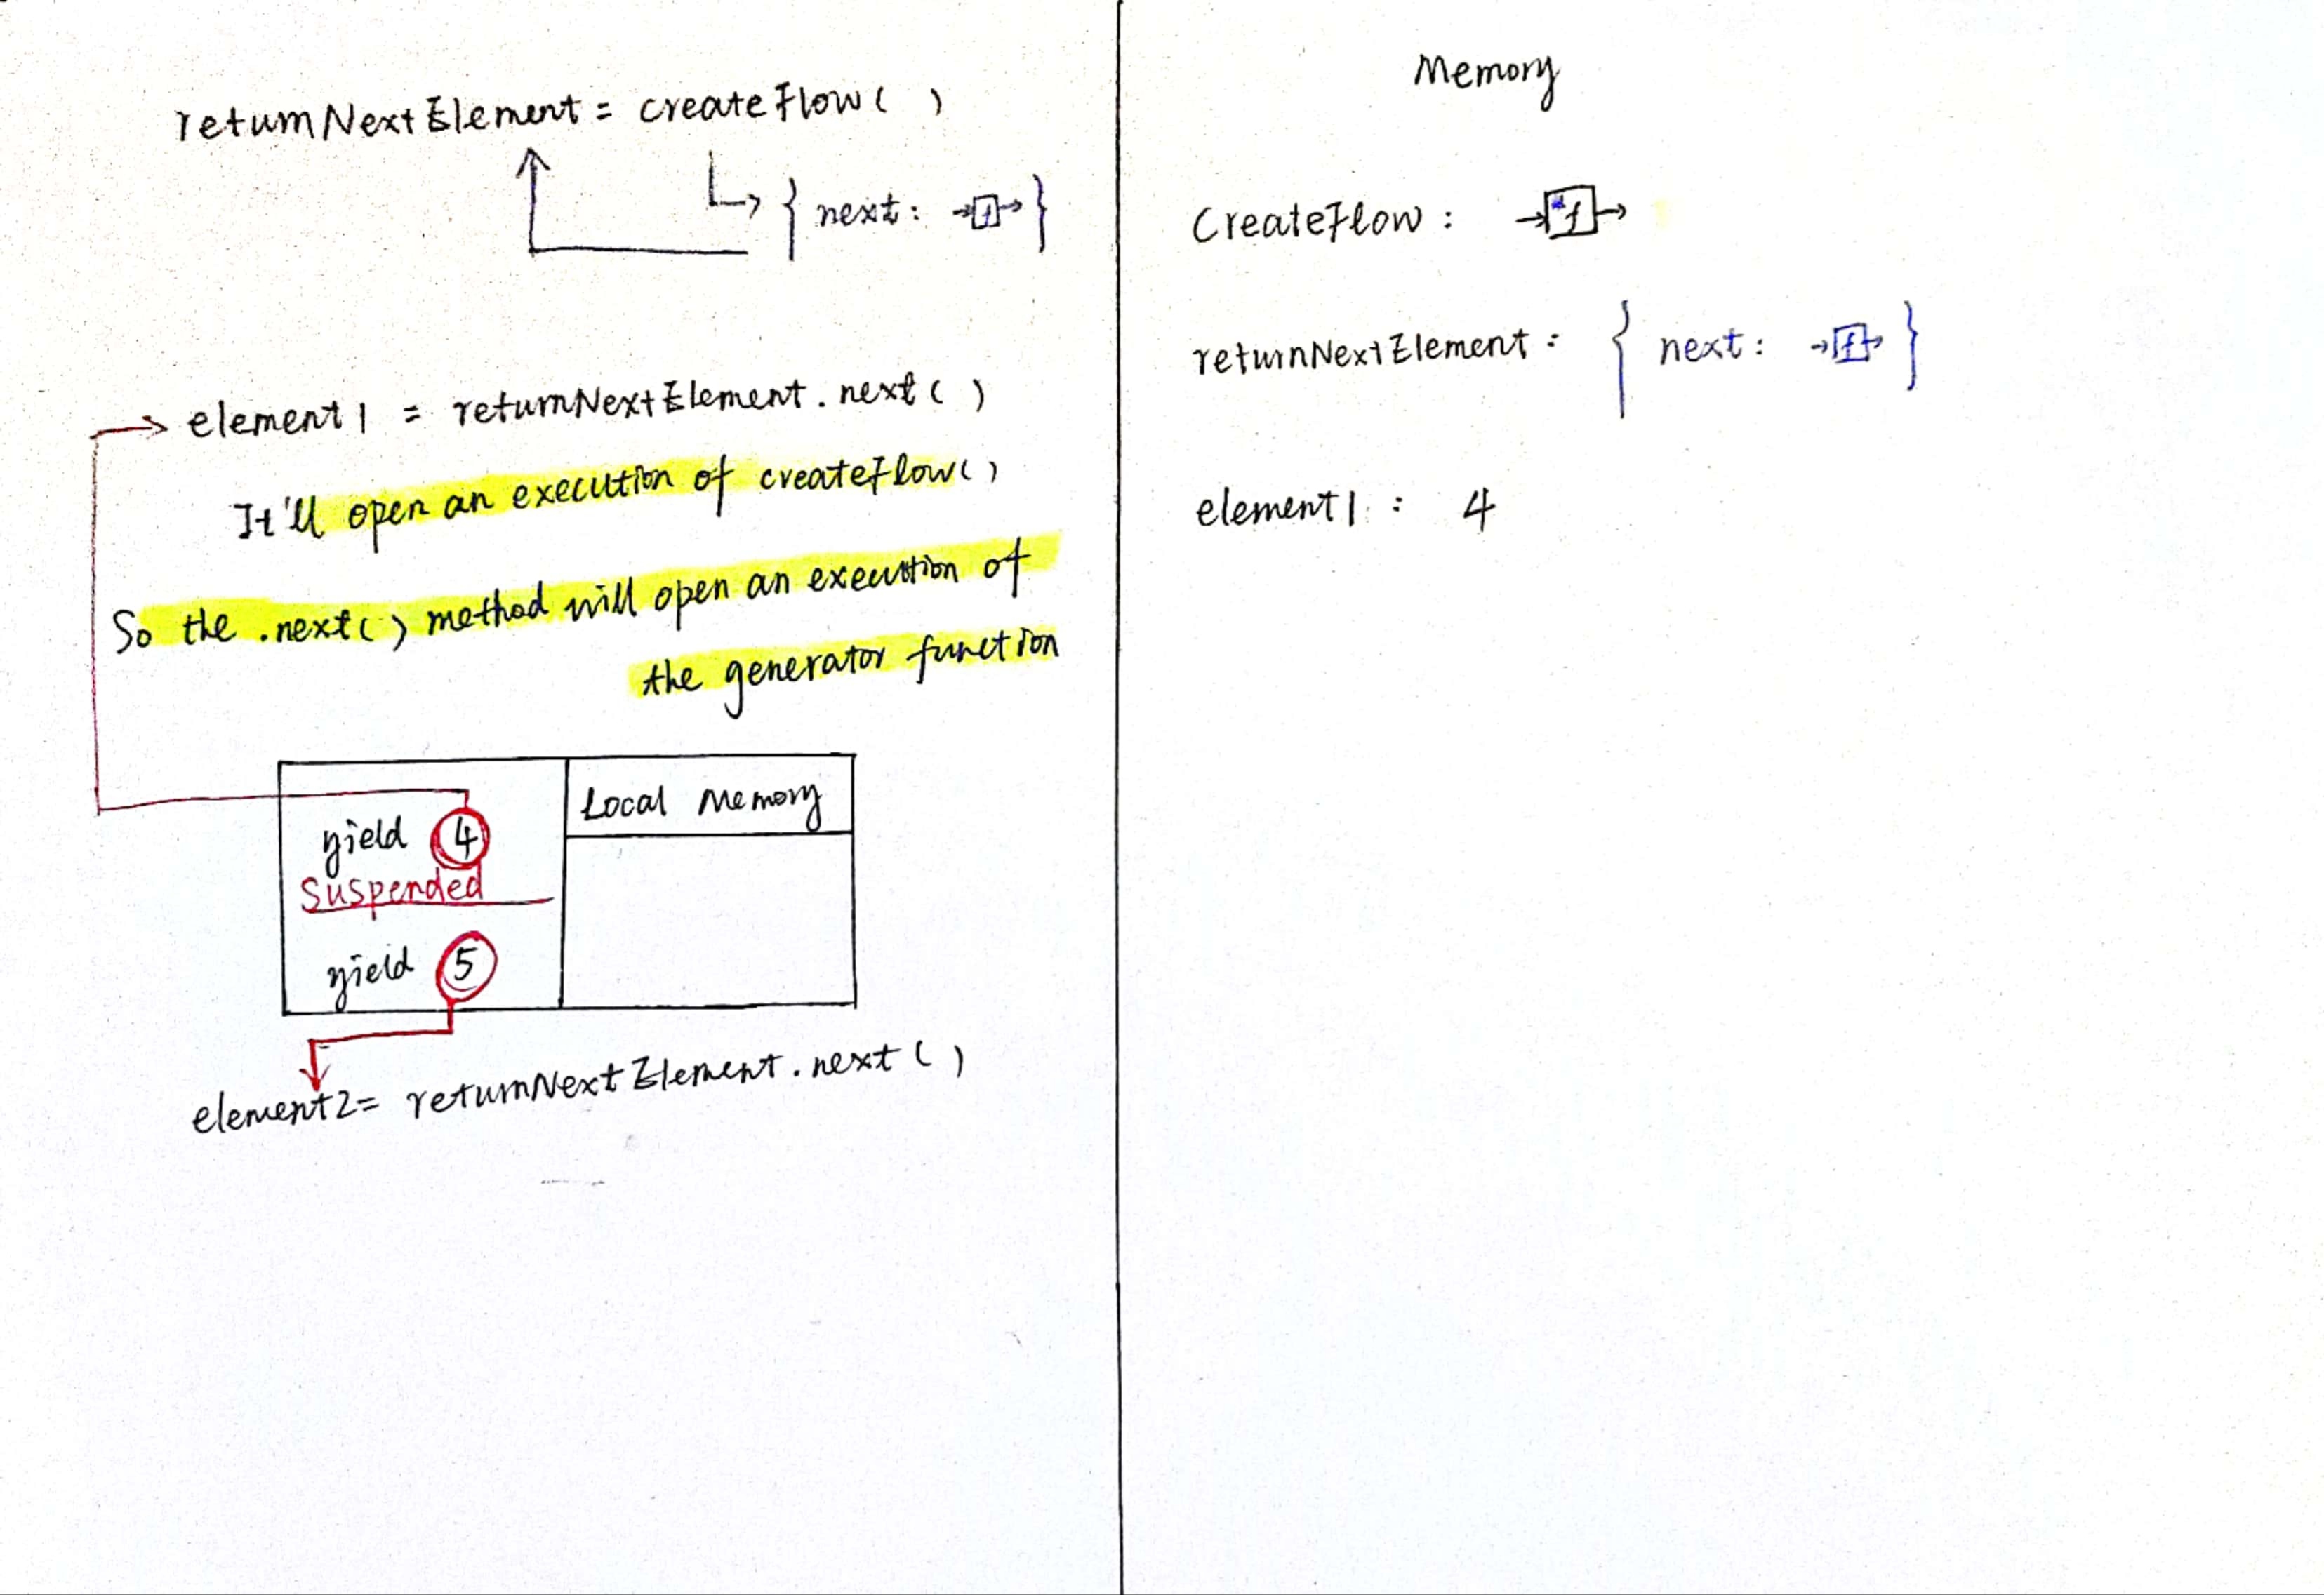 returnNextElement = createFlow ( )
{ next : f }
element1 = returnNextElement . next ( )
It'll open an execution of createFlow ( )
So the .next ( ) method will open an execution of
the generator function
Local Memory
yield 4
suspended
yield 5
element2 = returnNextElement . next ( )
Memory
CreateFlow : *f
returnNextElement : { next : f }
element1 : 4